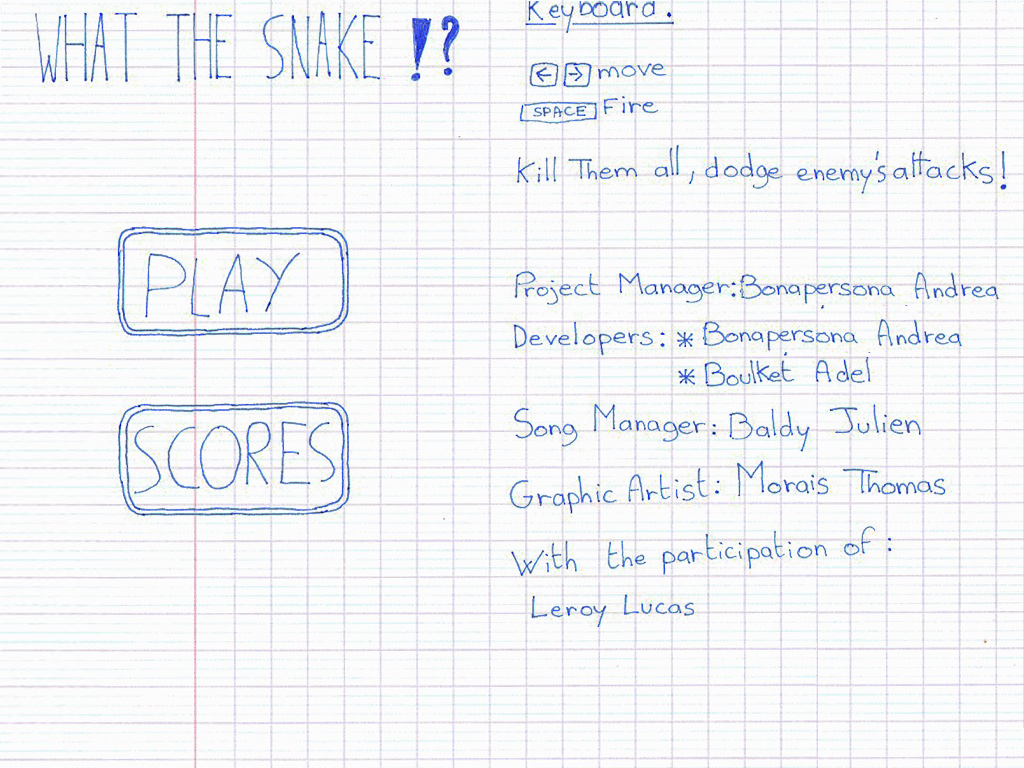 WHAT THE SNAKE !?
PLAY
SCORES
Keyboard.
← → move
SPACE Fire
Kill Them all, dodge enemy's attacks!
Project Manager: Bonapersona Andrea
Developers: * Bonapersona Andrea
* Boulket Adel
Song Manager: Baldy Julien
Graphic Artist: Morais Thomas
With the participation of :
Leroy Lucas